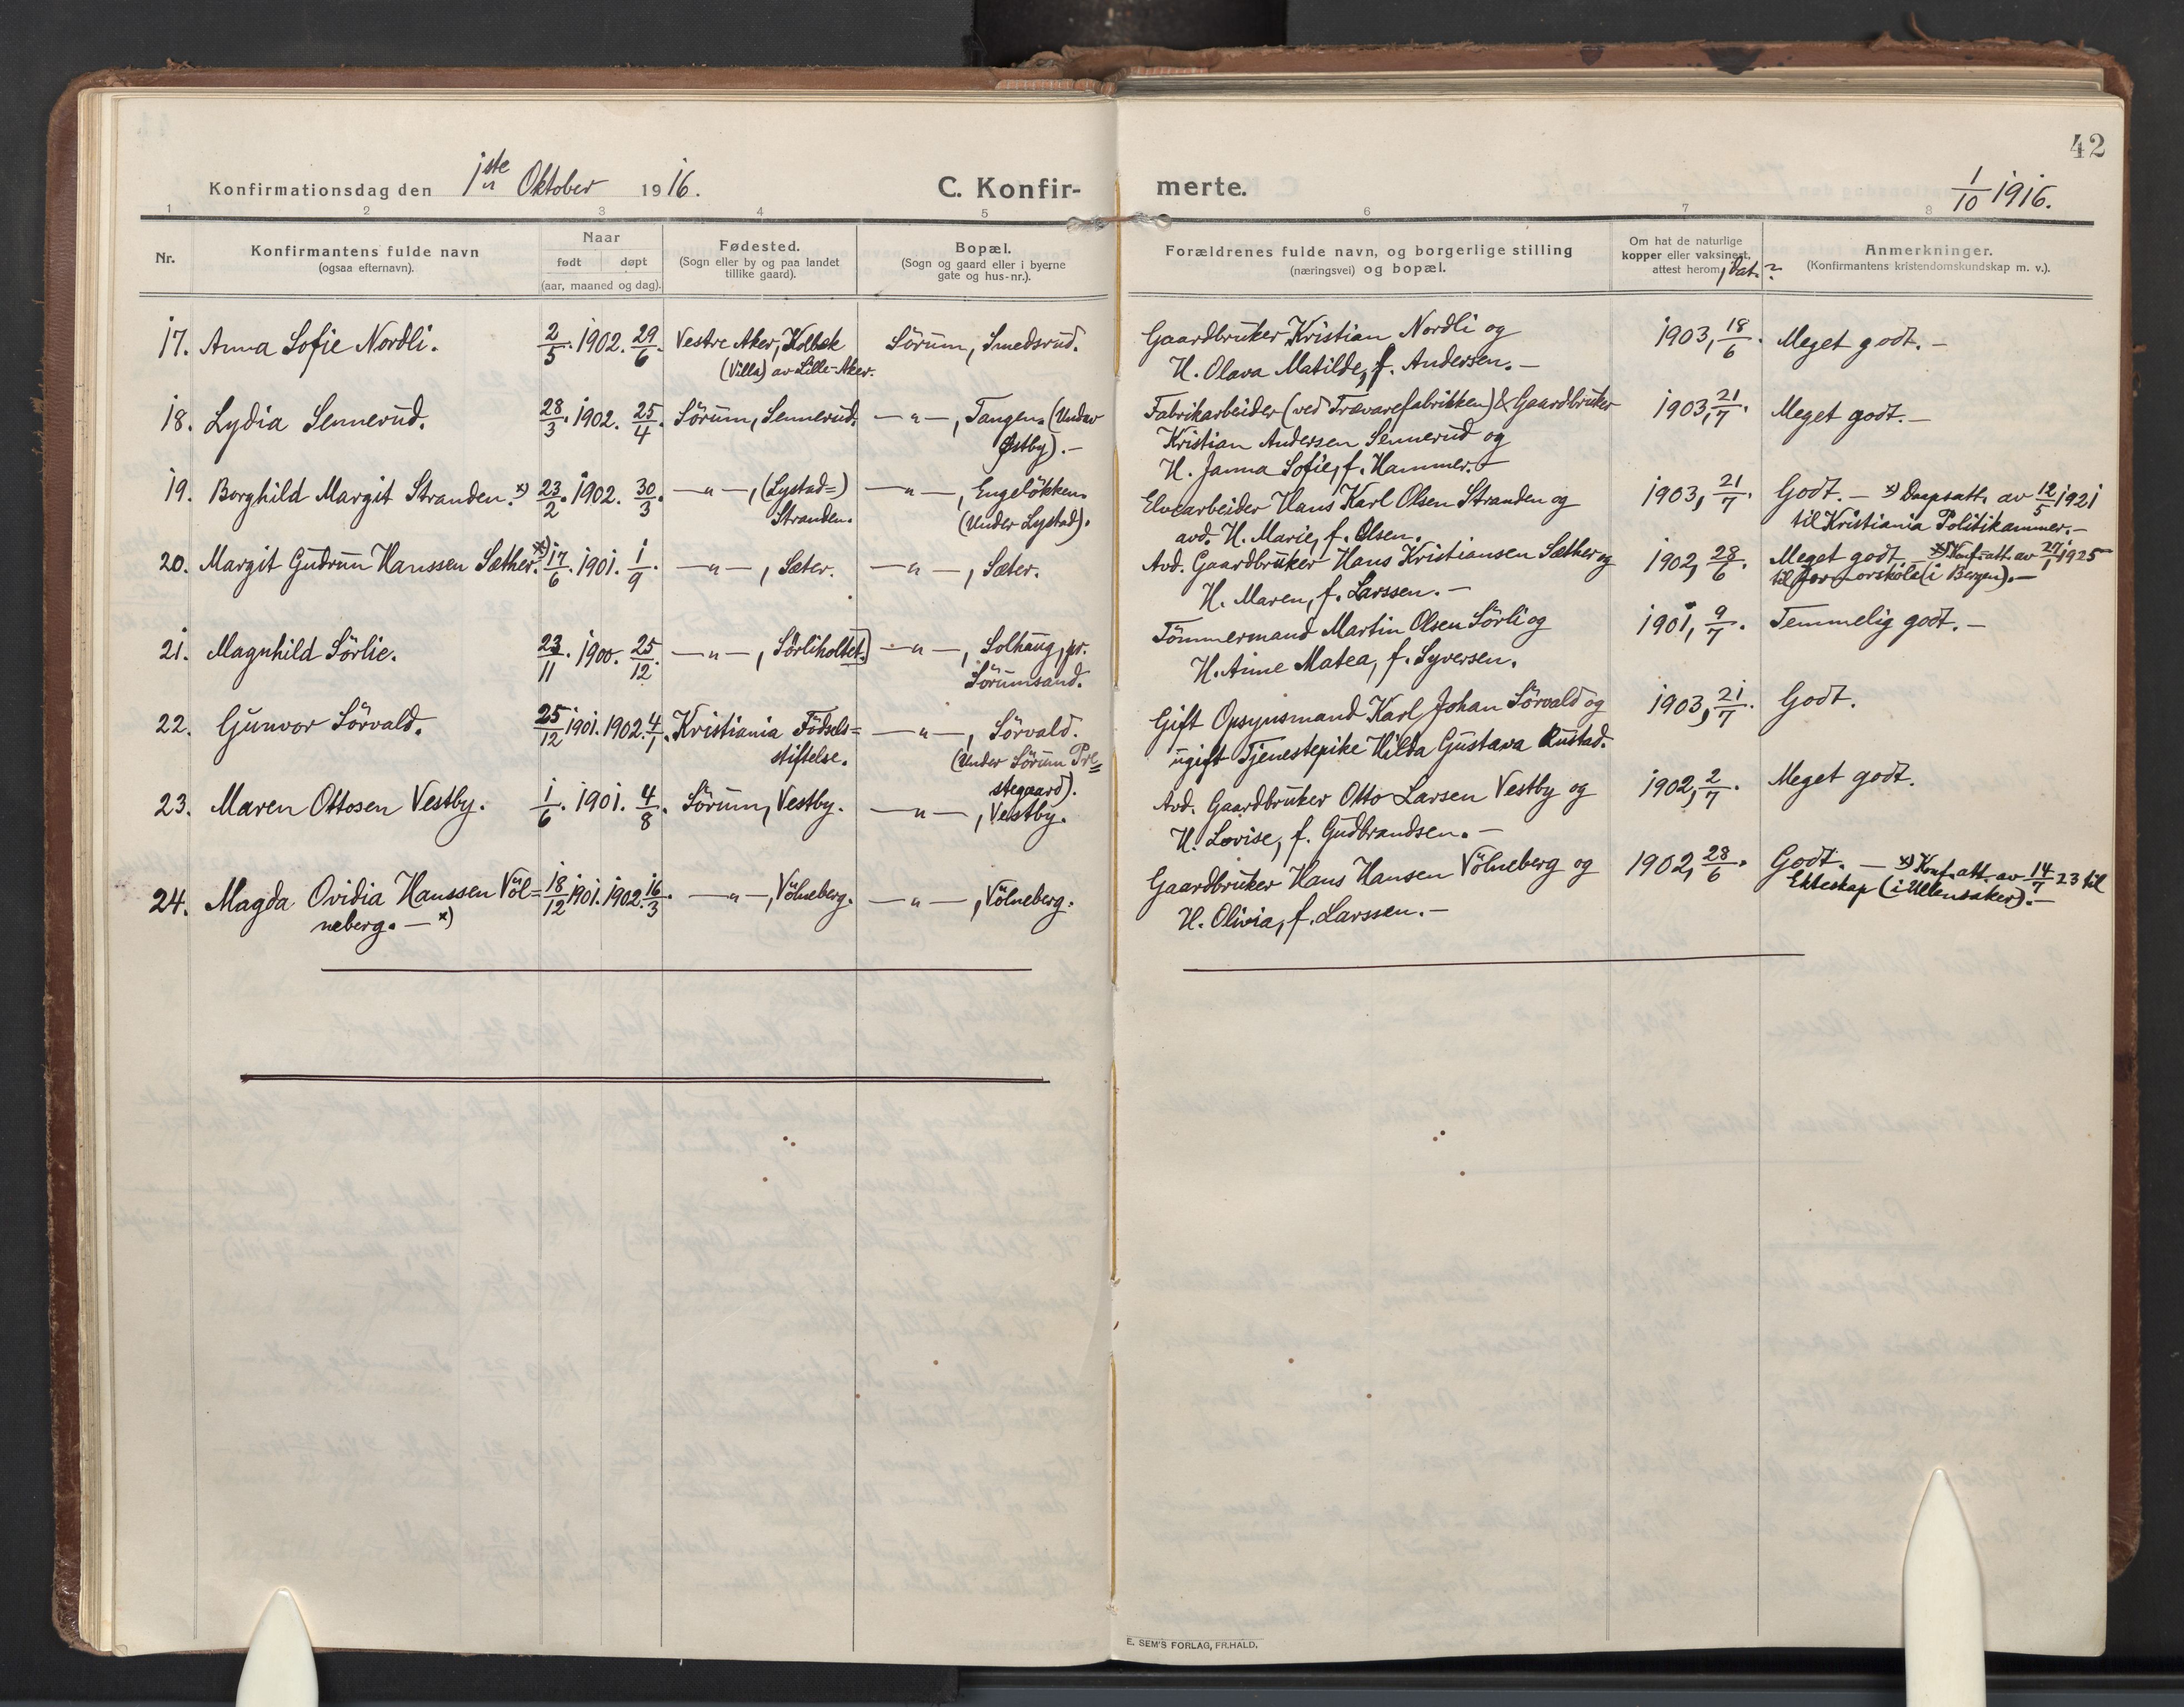 42
Konfirmationsdag den 1ste Oktober 1916. C. Konfir-
merte. 1/10 1916.
1 2 3 4 5 6 7 8
Nr.
Konfirmantens fulde navn
(ogsaa efternavn).
Naar
født døpt
(aar, maaned og dag).
Fødested.
(Sogn eller by og paa landet
tillike gaard).
Bopæl.
(Sogn og gaard eller i byerne
gate og hus-nr.).
Forældrenes fulde navn, og borgerlige stilling
(næringsvei) og bopæl.
Om hat de naturlige
kopper eller vaksinert,
attest herom, Dat.?
Anmerkninger.
(Konfirmantens kristendomskundskap m. v.).
17. Anna Sofie Nordli. 2/5. 1902. 29/6. Vestre Aker, Holbæk
(Villa) av Lille-Aker.
Sörum, Smedsrud.
Gaardbruker Kristian Nordli og
H. Olava Matilde, f. Andersen. —
1903, 18/6. Meget godt. —
18. Lydia Sennerud. 28/3. 1902. 25/4. Sörum, Sennerud. —"—, Tangen. (Under
Østby). —
Fabrikarbeider (ved Trævarefabrikken) & Gaardbruker
Kristian Andersen Sennerud og
H. Janna Sofie, f. Hammer. —
1903, 21/7. Meget godt. —
19. Borghild Margit Stranden. x) 23/2. 1902. 30/3. —"—, (Lystad=)
Stranden.
—"—, Engelökken.
(Under Lystad).
Elvearbeider Hans Karl Olsen Stranden og
avd. H. Marie, f. Olsen.
1903, 21/7. Godt. — x) Daapsatt. av 12/5 1921
til Kristiania Politikammer. —
20. Margit Gudrun Hanssen Sæther. x) 17/6. 1901. 1/9. —"—, Sæter. —"—, Sæter.
Avd. Gaardbruker Hans Kristiansen Sæther og
H. Maren, f. Larssen. —
1902, 28/6. Meget godt. x) Konf.-att. av 27/1 1925
til Jormorskole (i Bergen). —
21. Magnhild Sörlie. 23/11. 1900. 25/12. —"—, Sörliholtet.) —"—, Solhaug, pr.
Sörumsand.
Tömmermand Martin Olsen Sörli og
H. Anne Matea, f. Syversen.
1901, 9/7. Temmelig godt. —
22. Gunvor Sörvald. 25/12 1901. 1902. 4/1. Kristiania Födsels=
stiftelse.
—"—, Sörvald.
(Under Sörum Pre=
stegaard).
Gift Opsynsmand Karl Johan Sörvald og
ugift Tjenestepike Hilda Gustava Rustad.
1903, 21/7. Godt.
23. Maren Ottosen Vestby. 1/6. 1901. 4/8. Sörum, Vestby. —"—, Vestby.
Avd. Gaardbruker Otto Larsen Vestby og
H. Lovise, f. Gudbrandsen. —
1902, 2/7. Meget godt.
24. Magda Ovidia Hanssen Völ=
neberg. — x)
18/12 1901. 1902. 16/3. —"—, Völneberg. —"—, Völneberg.
Gaardbruker Hans Hansen Völneberg og
H. Olivia, f. Larssen. —
1902, 28/6. Godt. — x) Konf.att. av 14/7 23 til
Ekteskap (i Ullensaker). —
E. SEM'S FORLAG, FR.HALD.